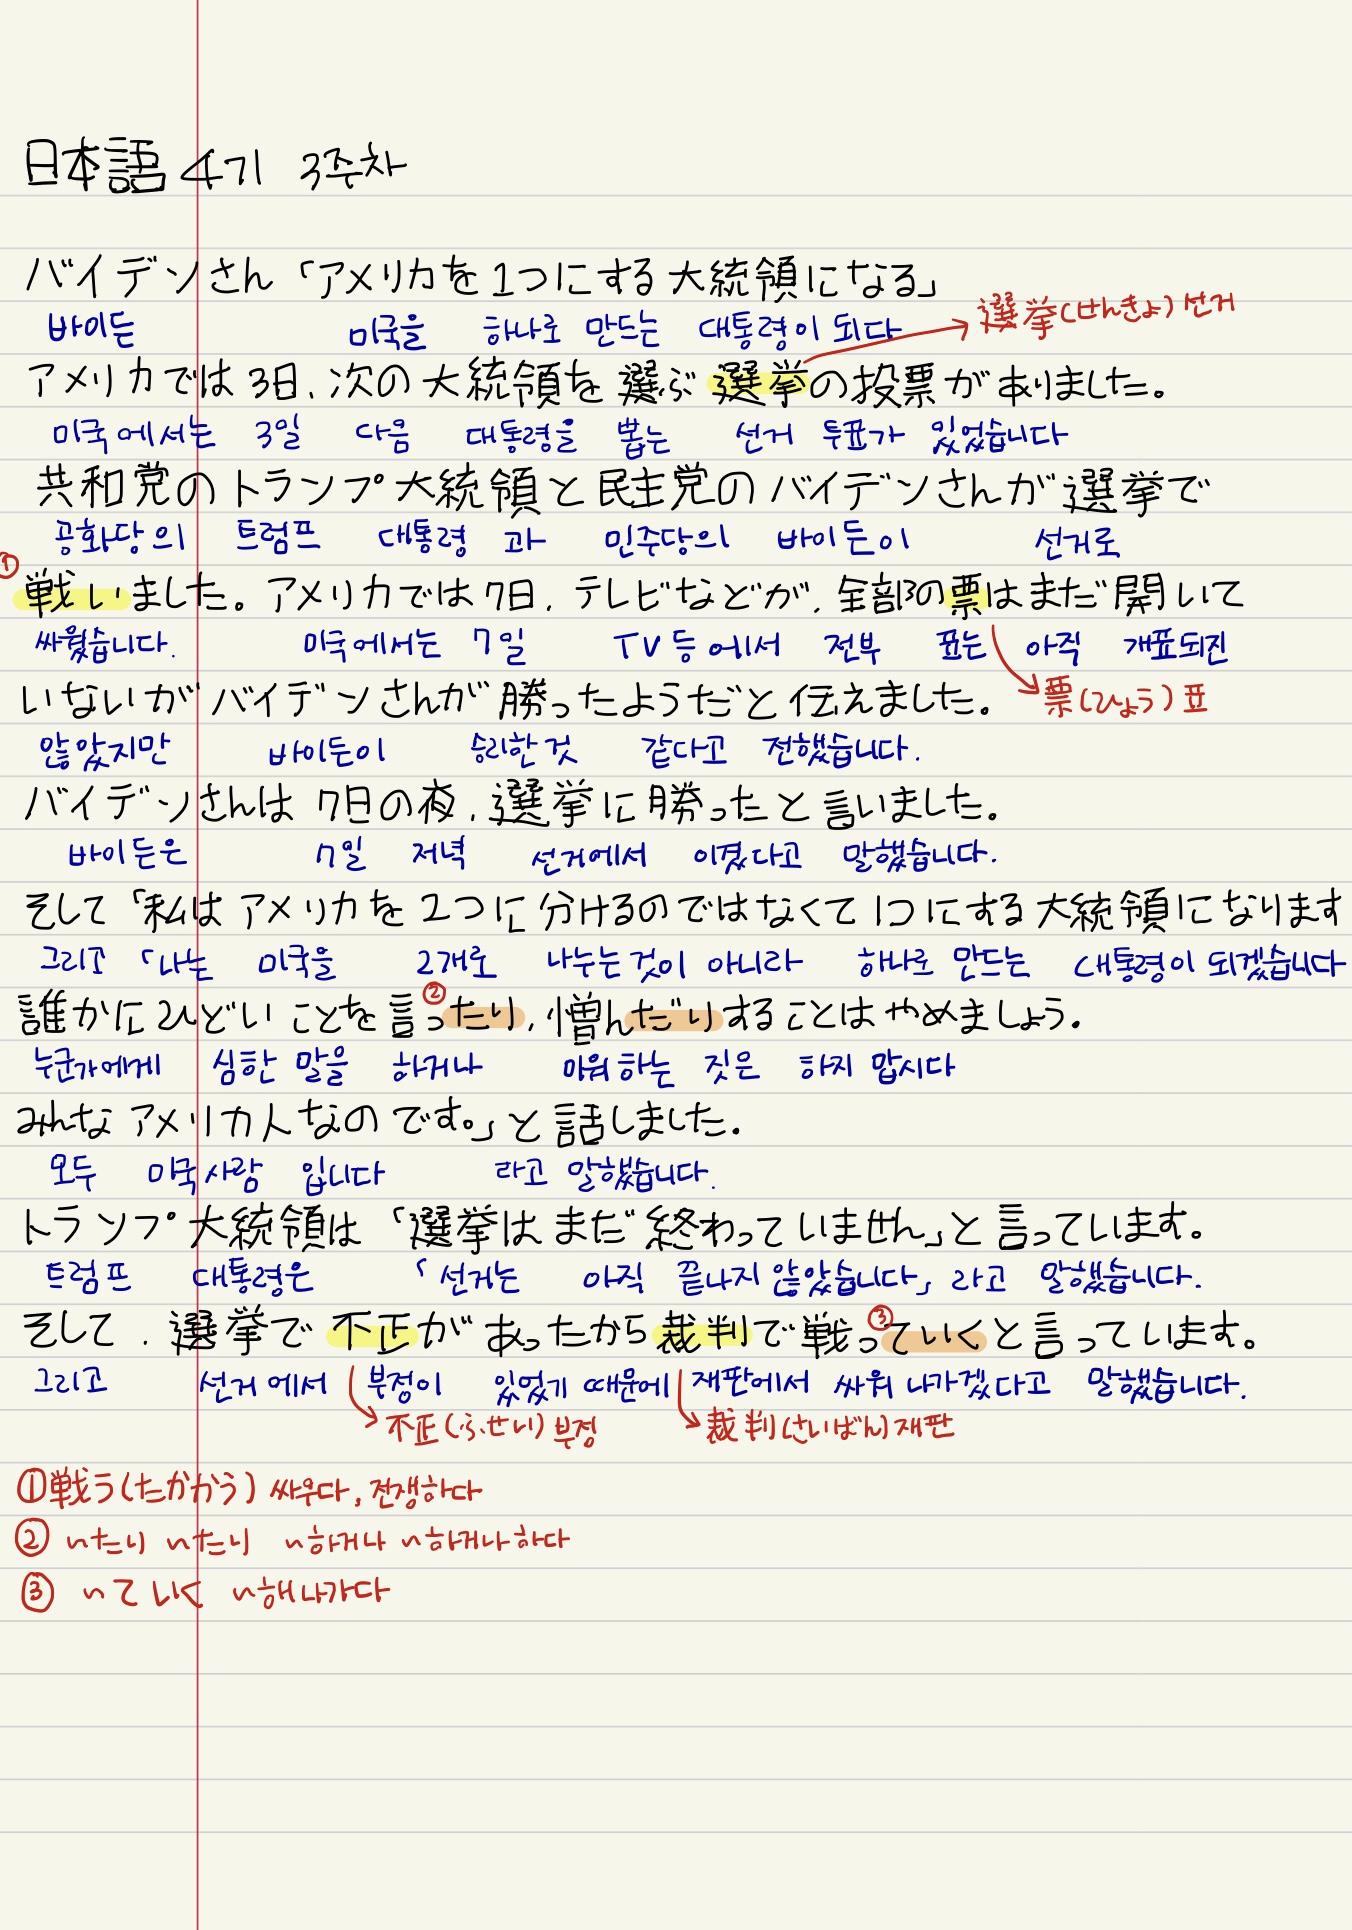 日本語 4기 3주차
バイデンさん「アメリカを1つにする大統領になる」
바이든 미국을 하나로 만드는 대통령이 되다
選挙(せんきょ) 선거
アメリカでは3日、次の大統領を選ぶ選挙の投票がありました。
미국에서는 3일 다음 대통령을 뽑는 선거 투표가 있었습니다
共和党のトランプ大統領と民主党のバイデンさんが選挙で
공화당의 트럼프 대통령 과 민주당의 바이든이 선거로
① 戦いました。アメリカでは7日、テレビなどが、全部の票はまだ開いて
싸웠습니다. 미국에서는 7일 TV 등에서 전부 표는 아직 개표되진
いないがバイデンさんが勝ったようだと伝えました。
票(ひょう) 표
않았지만 바이든이 승리한 것 같다고 전했습니다.
バイデンさんは7日の夜、選挙に勝ったと言いました。
바이든은 7일 저녁 선거에서 이겼다고 말했습니다.
そして「私はアメリカを2つに分けるのではなくて1つにする大統領になります
그리고 「나는 미국을 2개로 나누는 것이 아니라 하나로 만드는 대통령이 되겠습니다
誰かにひどいことを言②ったり、憎んだりすることはやめましょう。
누군가에게 심한 말을 하거나 미워하는 짓은 하지 맙시다
みんなアメリカ人なのです。」と話しました。
모두 미국사람 입니다 라고 말했습니다.
トランプ大統領は「選挙はまだ終わっていません」と言っています。
트럼프 대통령은 「선거는 아직 끝나지 않았습니다」 라고 말했습니다.
そして、選挙で不正があったから裁判で戦っ③ていくと言っています。
그리고 선거에서 부정이 있었기 때문에 재판에서 싸워 나가겠다고 말했습니다.
不正(ふせい) 부정 裁判(さいばん) 재판
① 戦う(たかかう) 싸우다, 전쟁하다
② ~たり ~たり ~하거나 ~하거나하다
③ ~ていく ~해나가다